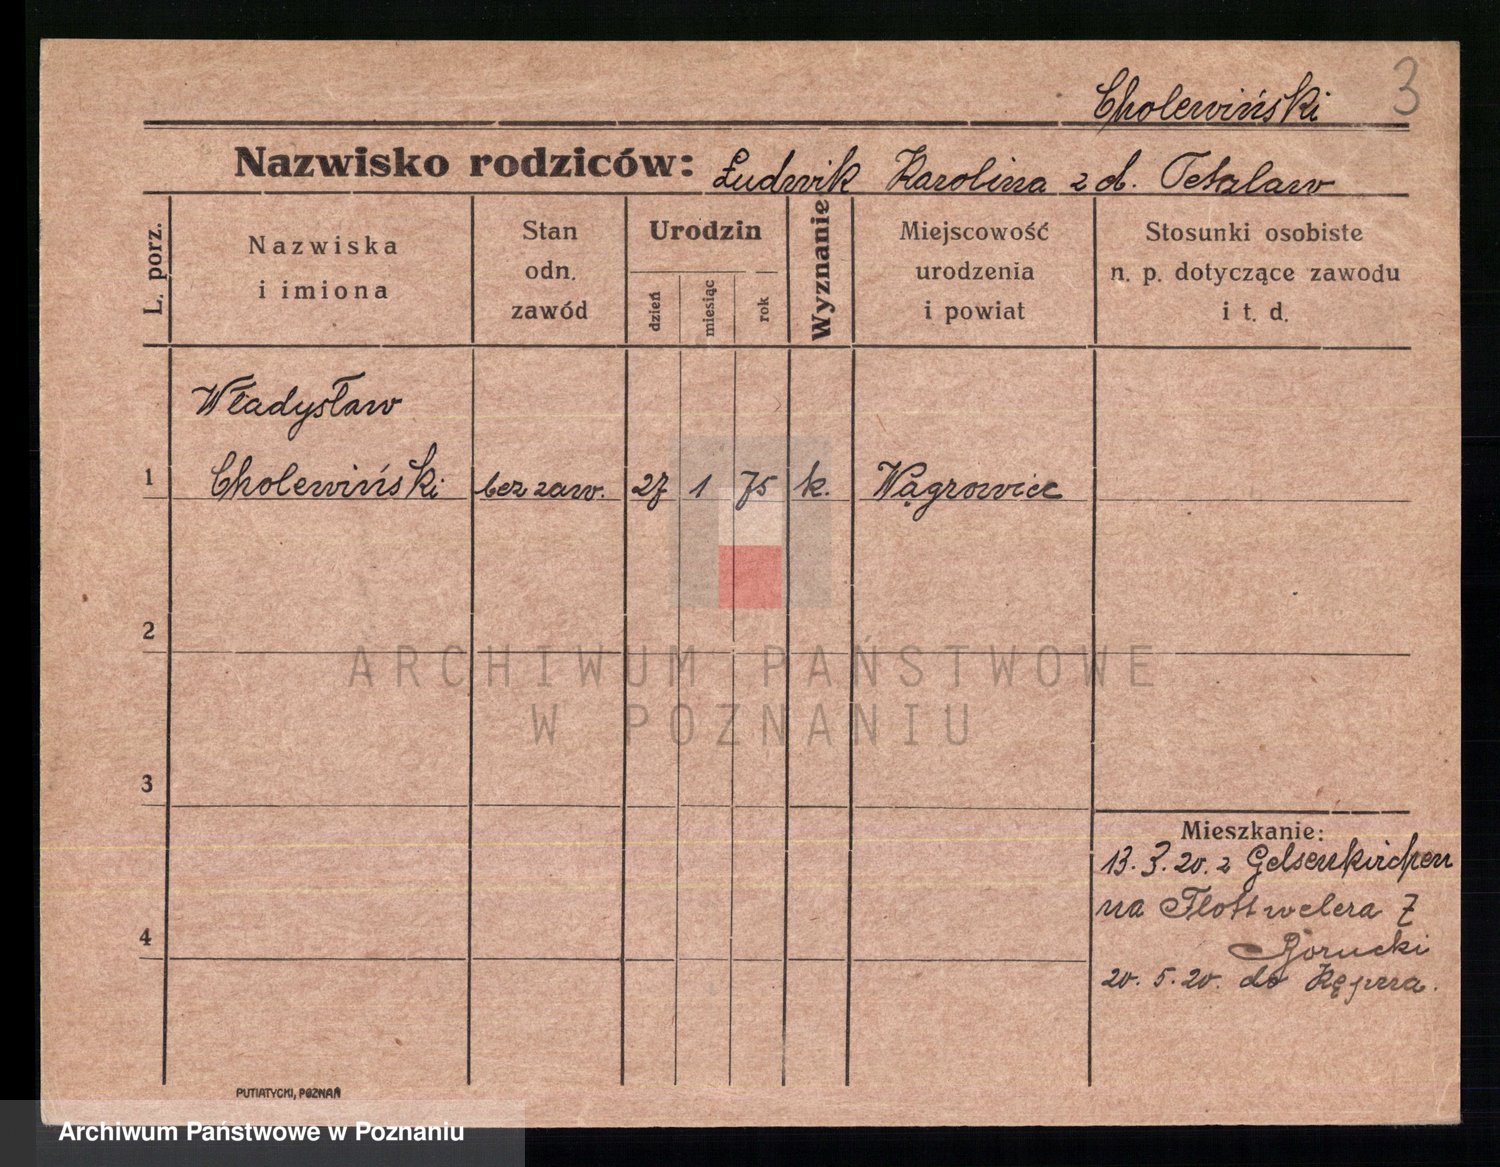 Cholewiński 3
Nazwisko rodziców: Ludwik Karolina z d.
L. porz.
Nazwiska
i imiona
Stan
odn.
zawód
Urodzin
dzień
miesiąc
rok
Wyznanie
Miejscowość
urodzenia
i powiat
Stosunki osobiste
n. p. dotyczące zawodu
i t. d.
Władysław
1 Cholewiński bez zaw. 27 1 75 k. Wągrowiec
2
ARCHIWUM PAŃSTWOWE
W POZNANIU
3
Mieszkanie:
13. 3. 20. z Gelsenkirchen
na Flottwelera 7
4
20. 5. 20. do Kępna.
PUTIATYCKI, POZNAŃ
Archiwum Państwowe w Poznaniu